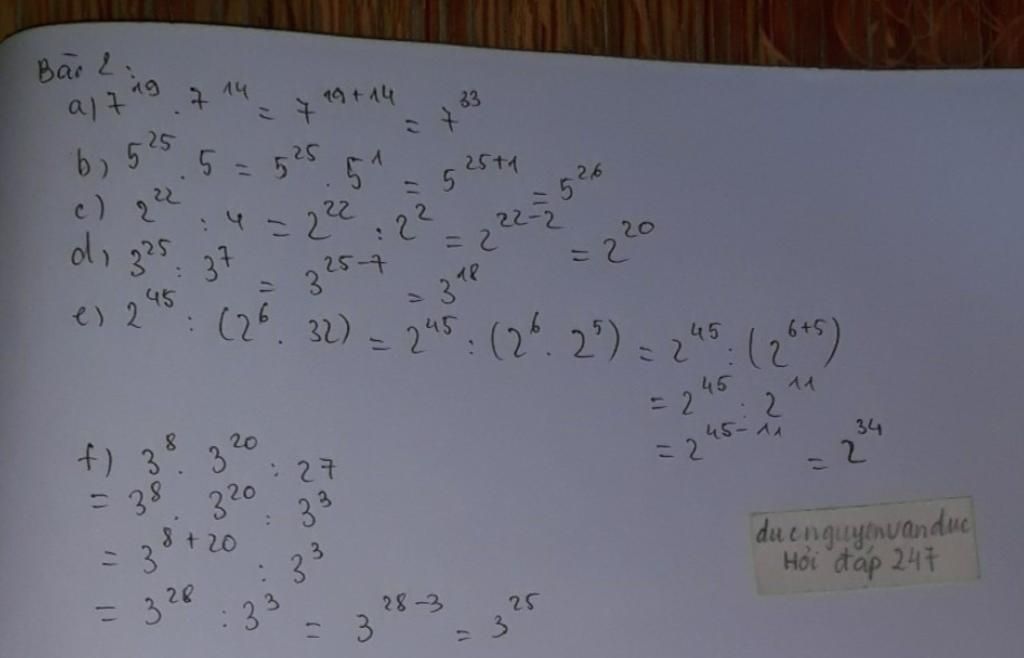 Bài 2:
a) 7^19 . 7^14 = 7^19+14 = 7^33
b) 5^25 . 5 = 5^25 . 5^1 = 5^25+1 = 5^26
c) 2^22 : 4 = 2^22 : 2^2 = 2^22-2 = 2^20
d) 3^25 : 3^7 = 3^25-7 = 3^18
e) 2^45 : (2^6 . 32) = 2^45 : (2^6 . 2^5) = 2^45 : (2^6+5)
= 2^45 : 2^11
= 2^45-11 = 2^34
f) 3^8 . 3^20 : 27
= 3^8 . 3^20 : 3^3
= 3^8+20 : 3^3
= 3^28 : 3^3 = 3^28-3 = 3^25
ducnguyenvanduc
Hỏi đáp 247